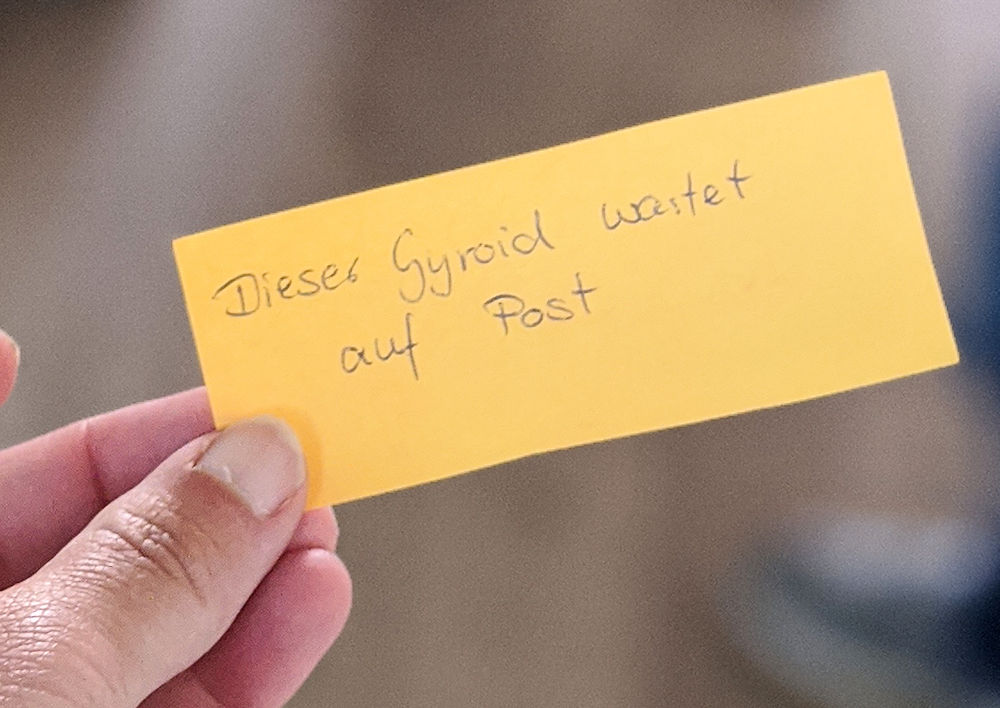 Dieser Gyroid wartet
auf Post